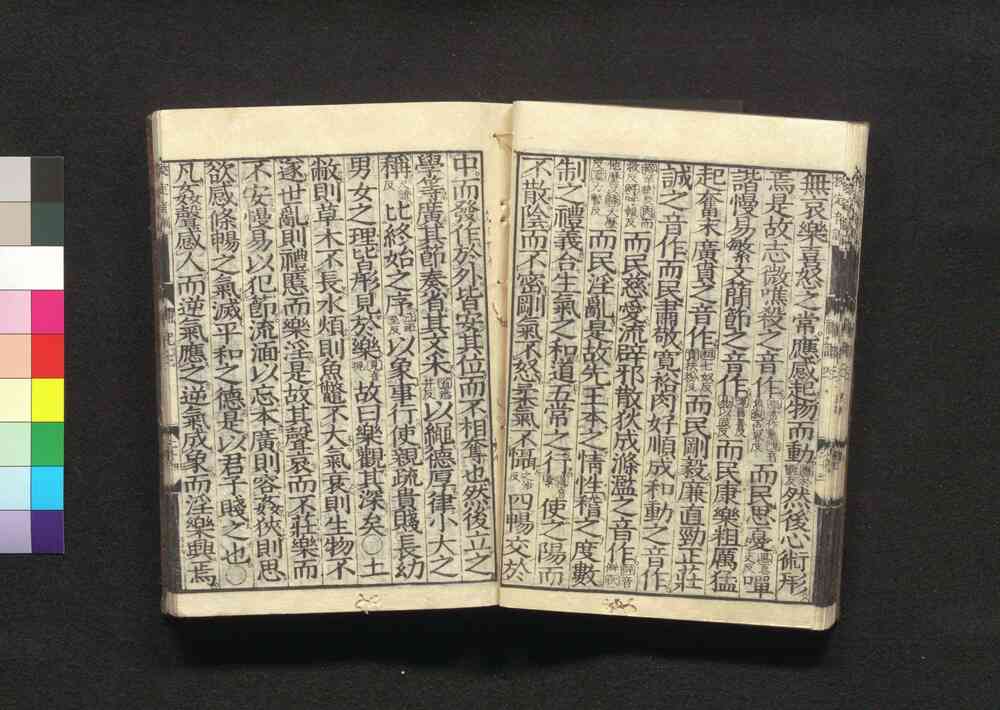 無哀樂喜怒之常應感起物而動然後心術形
焉是故志微噍殺之音作而民思憂嘽
諧慢易繁文簡節之音作而民康樂粗厲猛
起奮末廣賁之音作而民剛毅廉直勁正莊
誠之音作而民肅敬寬裕肉好順成和動之音作
而民慈愛流辟邪散狄成滌濫之音作
而民淫亂是故先王本之情性稽之度數
制之禮義合生氣之和道五常之行使之陽而
不散陰而不密剛氣不怒柔氣不懾四暢交於
中而發作於外皆安其位而不相奪也然後立之
學等廣其節奏省其文采以繩德厚律小大之
稱比終始之序以象事行使親疏貴賤長幼
男女之理皆形見於樂故曰樂觀其深矣○土
敝則草木不長水煩則魚鼈不大氣衰則生物不
遂世亂則禮慝而樂淫是故其聲哀而不莊樂而
不安慢易以犯節流湎以忘本廣則容姦狹則思
欲感條暢之氣滅平和之德是以君子賤之也○
凡姦聲感人而逆氣應之逆氣成象而淫樂興焉